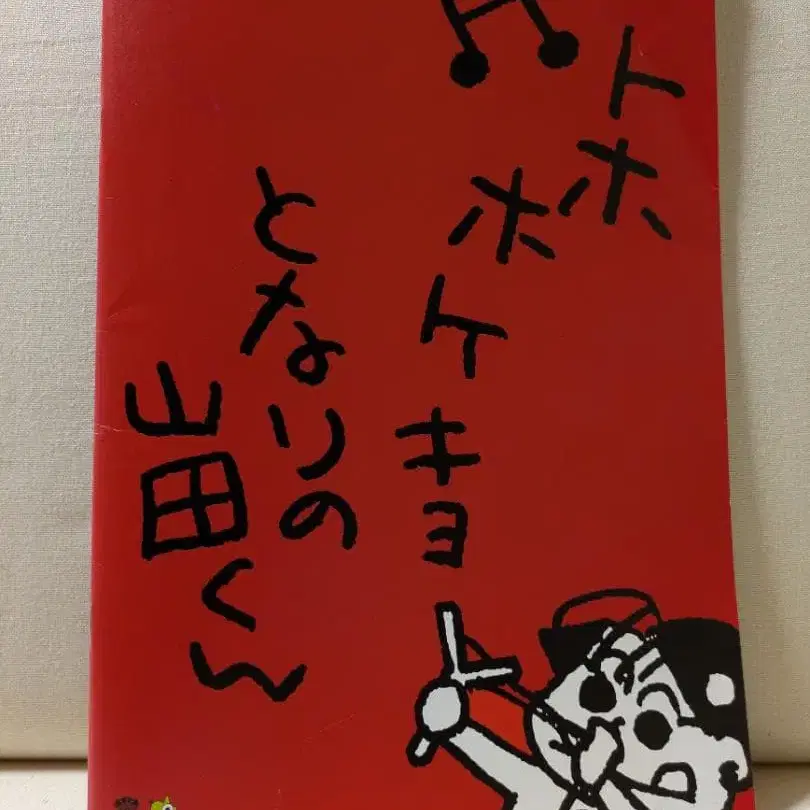 トホホケキョ
となりの
山田くん